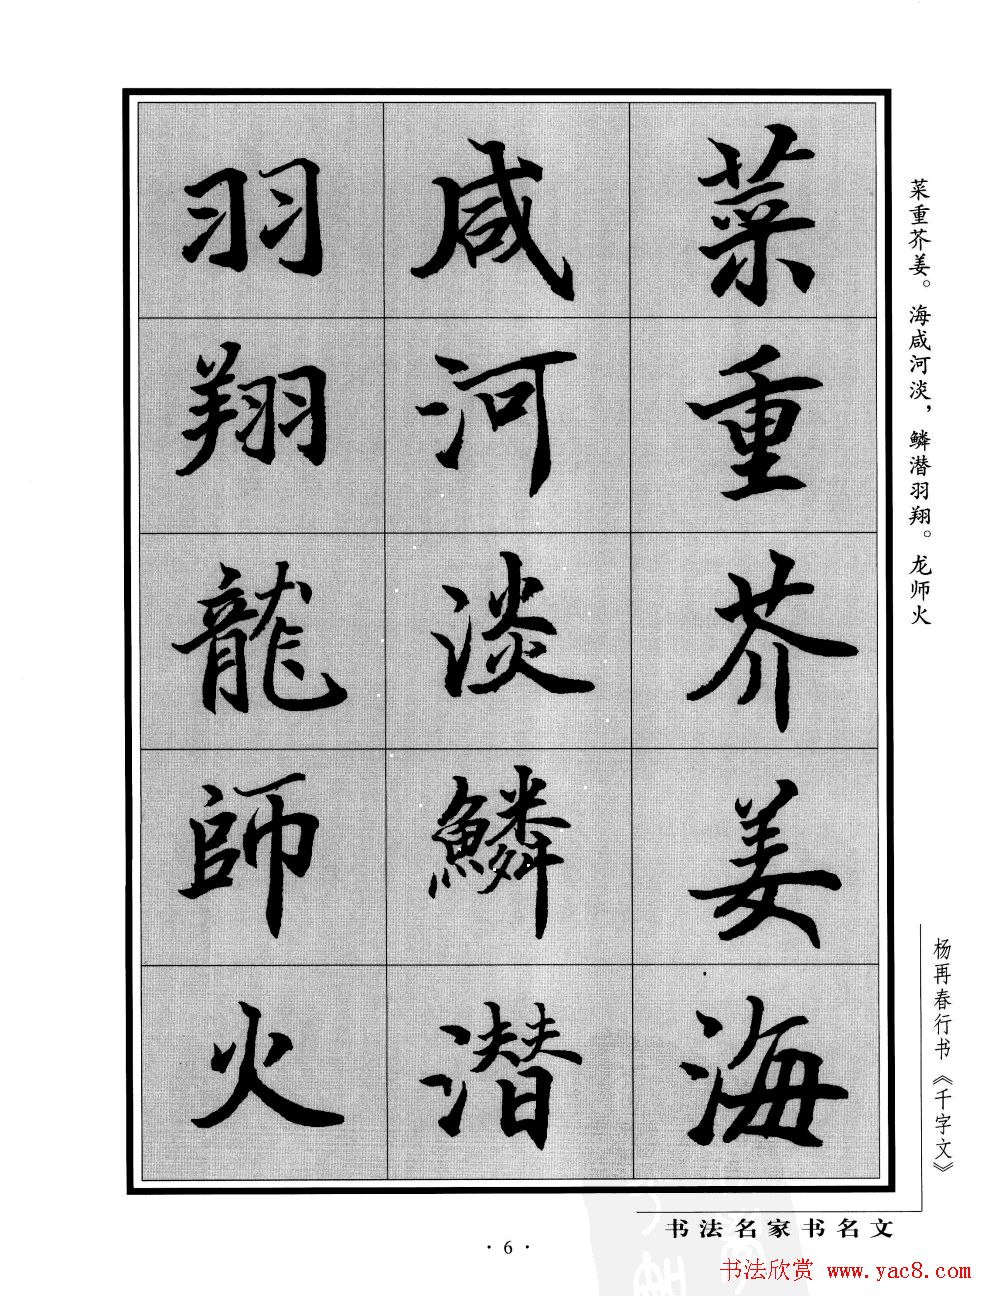 菜重芥姜海
咸河淡鱗潜
羽翔龍師火
菜重芥姜。海咸河淡，鳞潜羽翔。龙师火
杨再春行书《千字文》
书法名家书名文
·6·
书法欣赏 www.yac8.com